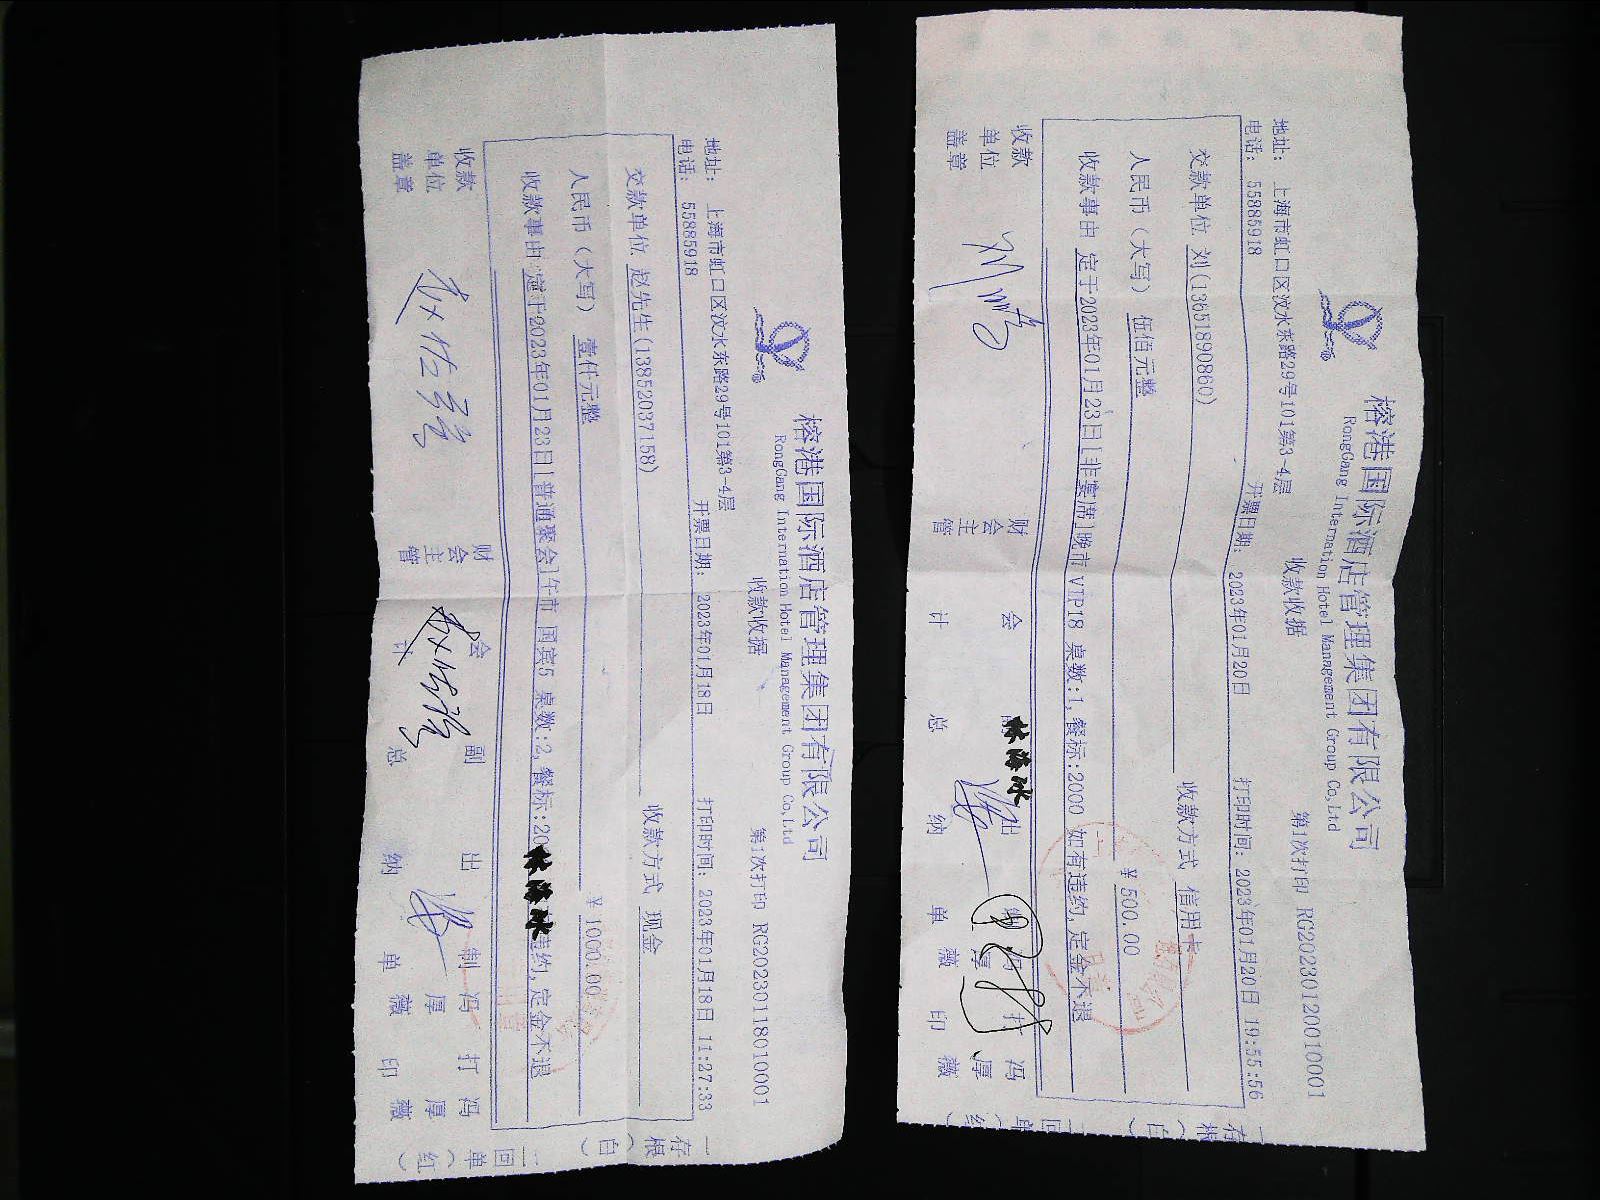 榕港国际酒店管理集团有限公司
RongGang Internation Hotel Management Group Co,Ltd
收款收据
第1次打印 RG20230118010001
地址: 上海市虹口区汶水东路29号101第3-4层
电话: 55885918
开票日期: 2023年01月18日
打印时间: 2023年01月18日 11:27:33
交款单位 赵先生(13852037158)
收款方式 现金
人民币(大写) 壹仟元整
¥ 1000.00
收款事由 定于2023年01月23日[普通聚会]午市 国宾5 桌数:2,餐标:20 违约,定金不退
收款单位盖章
财会主管
会计
副总
出纳
制单 冯厚薇
打印 冯厚薇
一存根(白)
二回单(红)
榕港国际酒店管理集团有限公司
RongGang Internation Hotel Management Group Co,Ltd
收款收据
第1次打印 RG20230120010001
地址: 上海市虹口区汶水东路29号101第3-4层
电话: 55885918
开票日期: 2023年01月20日
打印时间: 2023年01月20日 19:55:56
交款单位 刘(13651890860)
收款方式 信用卡
人民币(大写) 伍佰元整
¥ 500.00
收款事由 定于2023年01月23日[非宴席]晚市 VIP18 桌数:1,餐标:2000 如有违约,定金不退
收款单位盖章
财会主管
会计
总
出纳
单 厚薇
打印 冯厚薇
一存根(白)
二回单(红)